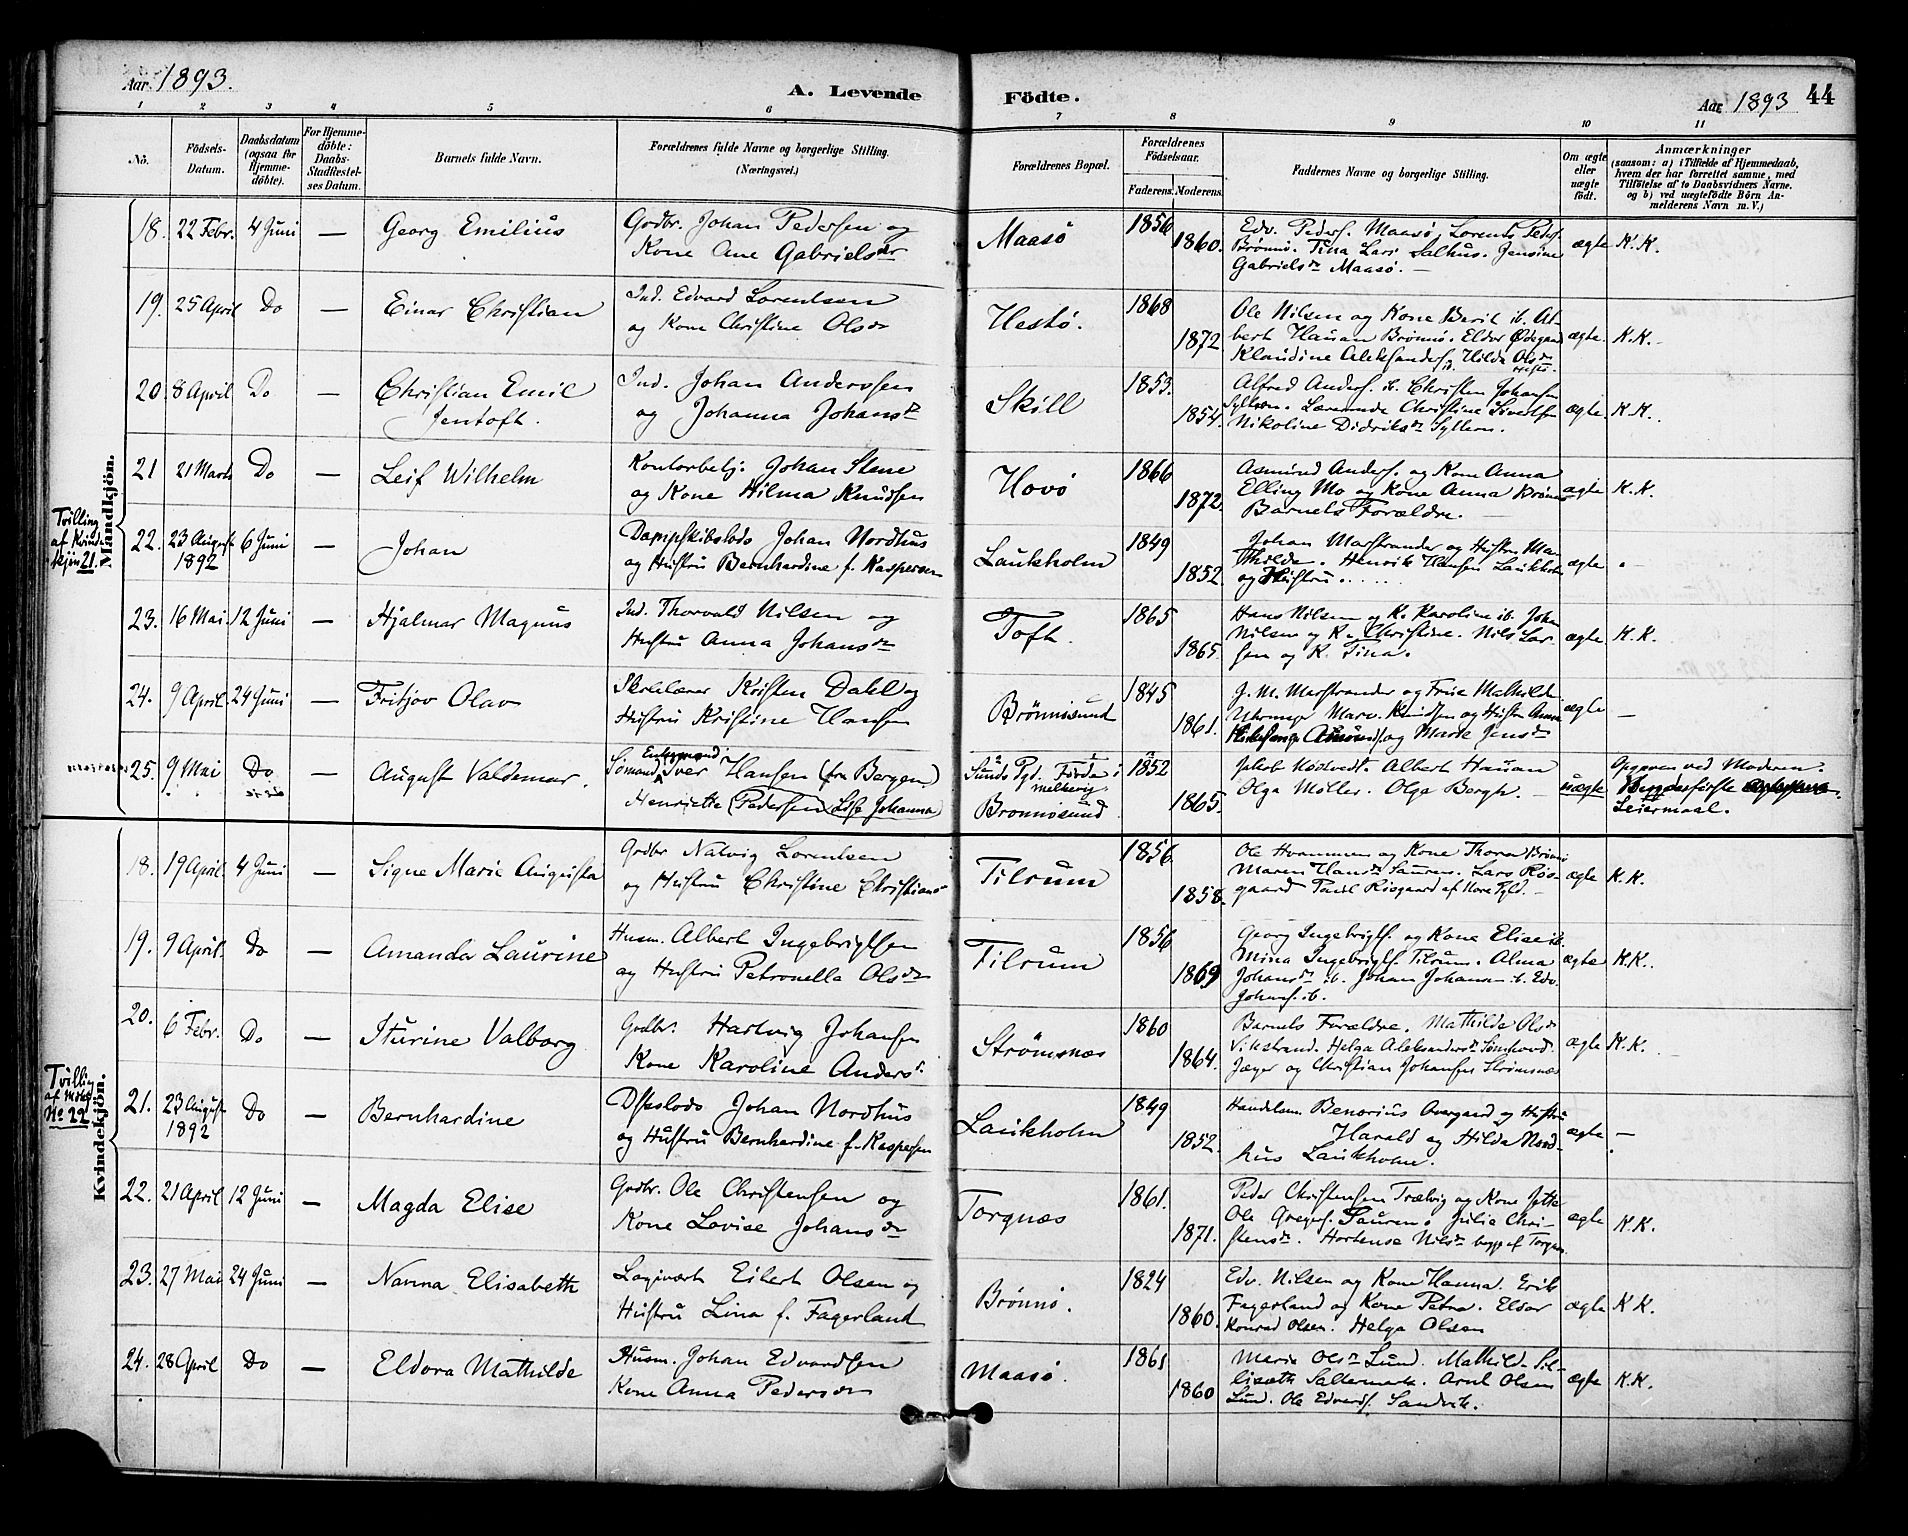 Aar 1893.
A. Levende Födte.
Aar 1893
44
1 2 3 4 5 6 7 8 9 10 11
No.
Födsels-Datum.
Daabsdatum (ogsaa for Hjemme-döbte).
For Hjemme-döbte: Daabs-Stadfæstel-ses Datum.
Barnets fulde Navn.
Forældrenes fulde Navne og borgerlige Stilling. (Næringsvei.)
Forældrenes Bopæl.
Forældrenes Födselsaar.
Faderens. Moderens.
Faddernes Navne og borgerlige Stilling.
Om ægte eller uægte födt.
Anmærkninger
(saasom: a) i Tilfælde af Hjemmedaab, hvem der har forrettet samme, med Tilföielse af to Daabsvidners Navne, og b) ved uegtefödte Börn An-melderens Navn m. V.)
Mandkjön.
18. 22 Febr. 4 Juni — Georg Emilius
Godbr. Johan Pedersen og
Kone Ane Gabrielsdr
Maasö 1856 1860.
Edv. Peders. Maasö, Lorents Peders.
Brönnö. Tina Lars Salhus. Jensine
Gabrielsdr Maasö. —
ægte K.K.
19. 25 April Do — Einar Christian
Ind. Edvard Lorentsen
og Kone Christine Olsdr
Hestö. 1868 1872
Ole Nilsen og Kone Berit ib. Al-
bert Hauan Brönnö. Eldor Ödegaard
Klaudine Aleksanders. ib. Hilda Olsdr
ægte. K.K.
20 8 April Do — Christian Emil
Jentoft.
Ind. Johan Anderssen
og Johanna Johansdr
Skill 1853. 1854.
Alfred Anders. ib. Christen Johansen
Nikoline Didriksdr Syltern.
ægte K.K.
21 21 Marts Do — Leif Wilhelm
Kontorbetj. Johan Stene
og Kone Hilma Knudsen
Hovö 1866 1872.
Asmund Anders. og Kone Anna
Elling Mo og Kone Anna Brönnö
Barnets Forældre.
ægte K.K.
Tvilling
af Kvinde-
kjön 21.
22. 23 August 1892 6 Juni — Johan
Dampskibslods Johan Nordhus
og Hustru Bernhardine f. Kaspersen
Laukholm 1849 1852.
Johan Marstrander og Hustru Ma-
thilde. Henrik Hansen Laukholm
og Hustru.
ægte
23. 16 Mai 12 Juni — Hjalmar Magnus
Ind. Thorvald Nilsen og
Hustru Anna Johansdr
Toft. 1865 1865.
Hans Nilsen og K. Karoline ib. Johan
Nilsen og K. Christine. Nils Lar-
sen og K. Tina.
ægte K.K.
24. 9 April 24 Juni — Fritjov Olav
Skolelærer Kristen Dahl og
Hustru Kristine Hansen
Brönnösund 1845 1861.
J. M. Marstrander og Frue Mathilde
Knudsen og Hustru Anna
og Marta Jensdr
ægte —
25. 9 Mai Do — August Valdemar.
Enkemand
Sömand Iver Hansen (fra Bergen)
Henriette Pedersen Lise Johanna
Sunds Pgd. Förde i
Melkevig.
Brönnösund 1852 1865.
Jakob Nödtvedt. Albert Hauan
Olga Möller. Olga Bergh. —
uægte
Opgiven ved Moderen.
Leiermaal.
Kvindekjön.
18. 19 April 4 Juni — Signe Marie Augusta
Godbr Natvig Lorentsen
og Hustru Christine Christians
Tilrum 1856 1858.
Ole Hvammen og Kone Thora Brönnö
Maren Hansdr Sauren. Lars Ris-
gaard Paul Risgaard af Nore Pgld.
ægte K.K.
19. 9 April. Do — Amanda Laurine
Husm. Albert Ingebrigtsen
og Hustru Petronella Olsdr
Tilrum 1856 1869
Georg Ingebrigts. og Kone Elise ib.
Mina Ingebrigts. Tilrum. Alma
Johansdr ib. Johan Johansen ib. Edv.
Johans. ib.
ægte K.K.
20. 6 Febr. Do — Iturine Valborg
Godbr. Hartvig Johansen
Kone Karoline Andersd.
Strömsnæs 1860 1864.
Barnets Forældre. Mathilde Olsdr
Vikstrand. Helga Aleksandersdr Sömhovd.
Jæger og Christian Johansen Strömsnæs
ægte K.K.
Tvilling
af Mdkj.
No 22.
21. 23 August 1892 Do — Bernhardine
Dskslods Johan Nordhus
og Hustru Bernhardine f. Kaspersen
Laukholm 1849 1852.
Handelsm. Benorius Overgard og Hustru
Harald og Hilda Nord-
hus Laukholm.
ægte —
22. 21 April 12 Juni — Magda Elise
Godbr. Ole Christensen og
Kone Lovise Johansdr
Torgnæs 1861. 1871.
Peder Christensen Trælvig og Kone Jette
Ole Gregers. Sauren. Julia Chri-
stensdr. Hortense Nilsdr begge af Torgnæs
ægte K.K.
23. 27 Mai 24 Juni — Nanna Elisabeth
Logivært Eilert Olsen og
Hustru Lina f. Fagerland
Brönnö. 1824 1860.
Edv. Nilsen og Kone Hanna. Erik
Fagerland og Kone Petra. Eldor
Konrad Olsen. Helga Olsen
ægte K.K.
24. 28 April Do — Eldora Mathilde
Husm. Johan Edvardsen
Kone Anna Pedersdr
Maasö. 1861 1860
Marie Olsdr Lund. Mathilde
Arnt Olsen
Lund. Ole Edvards. Sandvik.
ægte K.K.